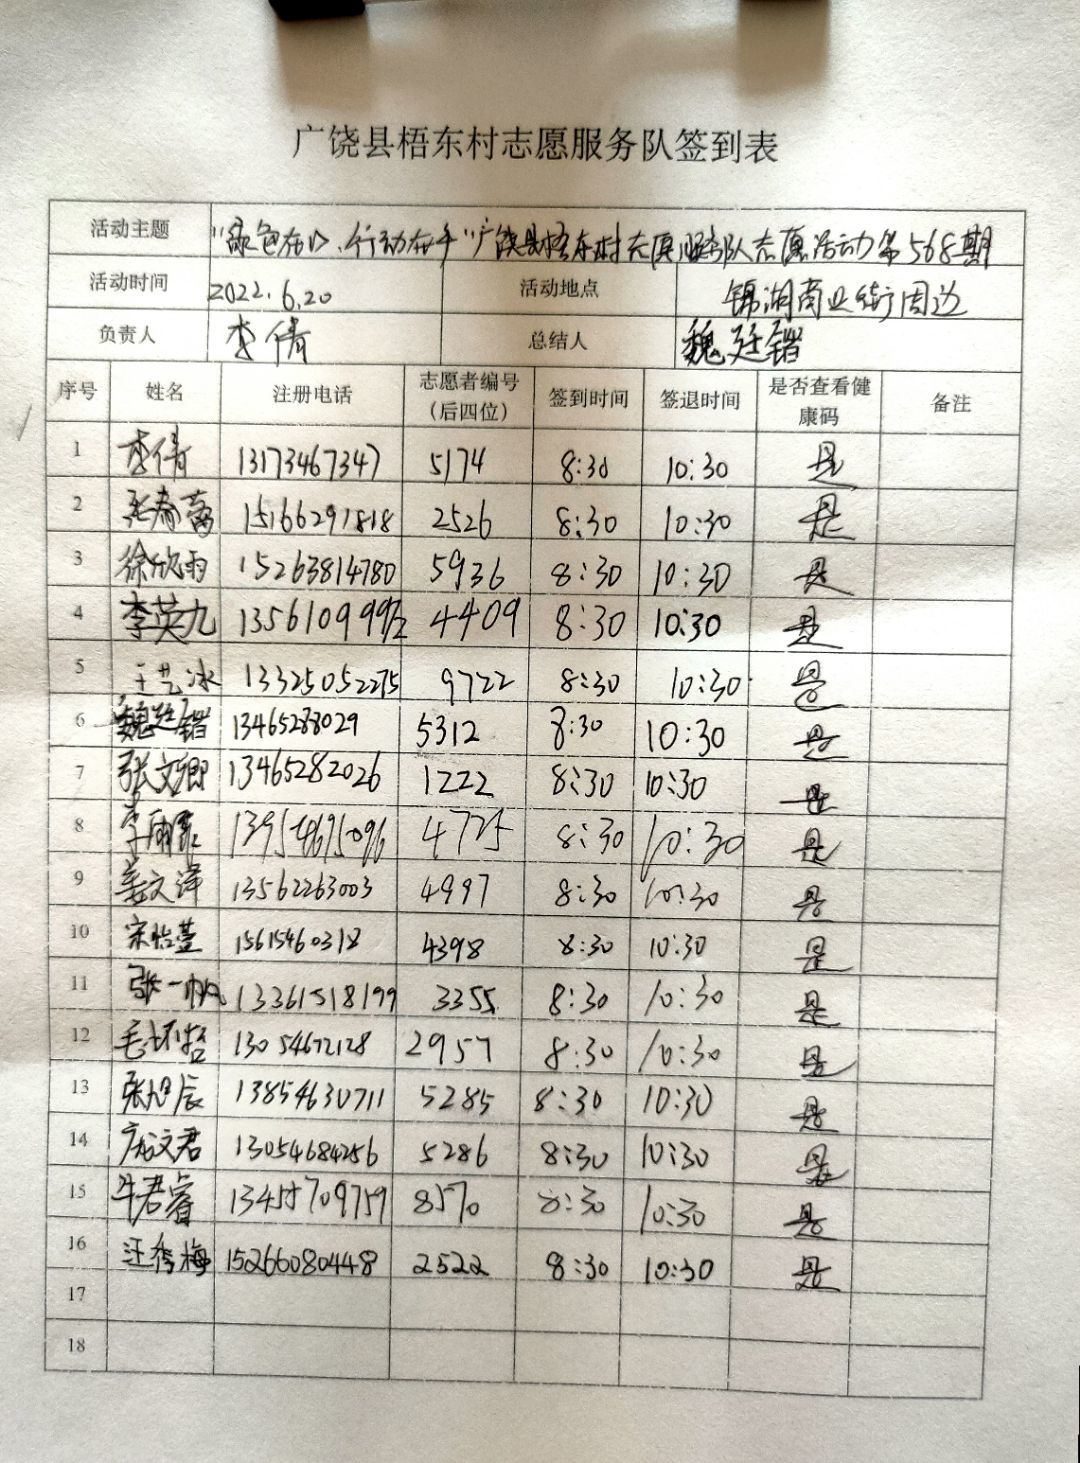 广饶县梧东村志愿服务队签到表
活动主题 "绿色在心、行动在手"广饶县梧东村志愿服务队志愿活动第568期
活动时间 2022.6.20 活动地点 锦湖商业街周边
负责人 李倩 总结人 魏廷锴
序号 姓名 注册电话 志愿者编号（后四位） 签到时间 签退时间 是否查看健康码 备注
1 李倩 13173467347 5174 8:30 10:30 是
2 张春蕾 15166291818 2526 8:30 10:30 是
3 徐欣雨 15263814780 5936 8:30 10:30 是
4 李英九 4409 8:30 10:30 是
5 王艺冰 13325052275 9722 8:30 10:30 是
6 魏廷锴 13465288029 5312 8:30 10:30 是
7 张文卿 13465282026 1222 8:30 10:30 是
8 4725 8:30 10:30 是
9 姜文泽 13562263003 4997 8:30 10:30 是
10 宋怡萱 15615460318 4398 8:30 10:30 是
11 张一帆 13361518199 3355 8:30 10:30 是
12 13054672128 2957 8:30 10:30 是
13 张旭辰 13854630711 5285 8:30 10:30 是
14 庞文君 13054684256 5286 8:30 10:30 是
15 牛君睿 8570 8:30 10:30 是
16 汪秀梅 15266080448 2522 8:30 10:30 是
17
18